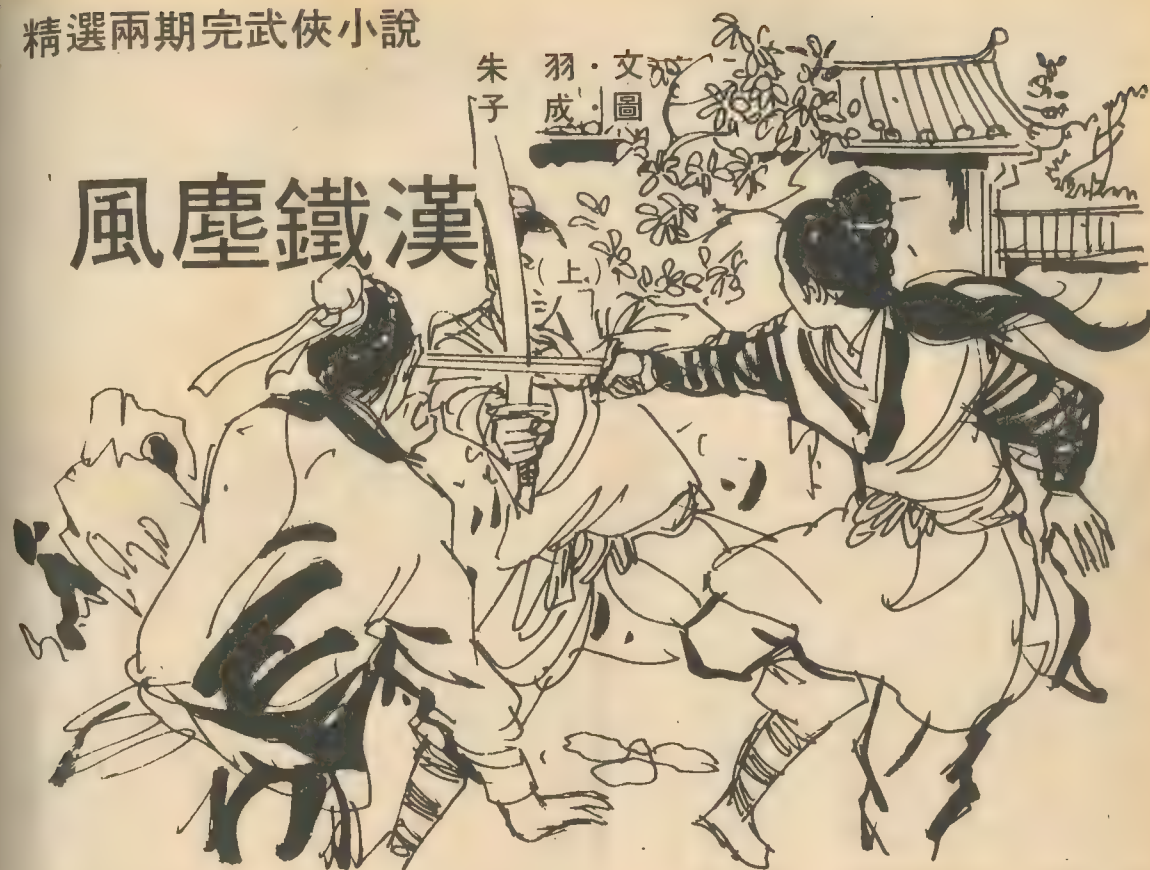 精選兩期完武俠小說
朱羽·文
子成·圖
風塵鐵漢
（上）